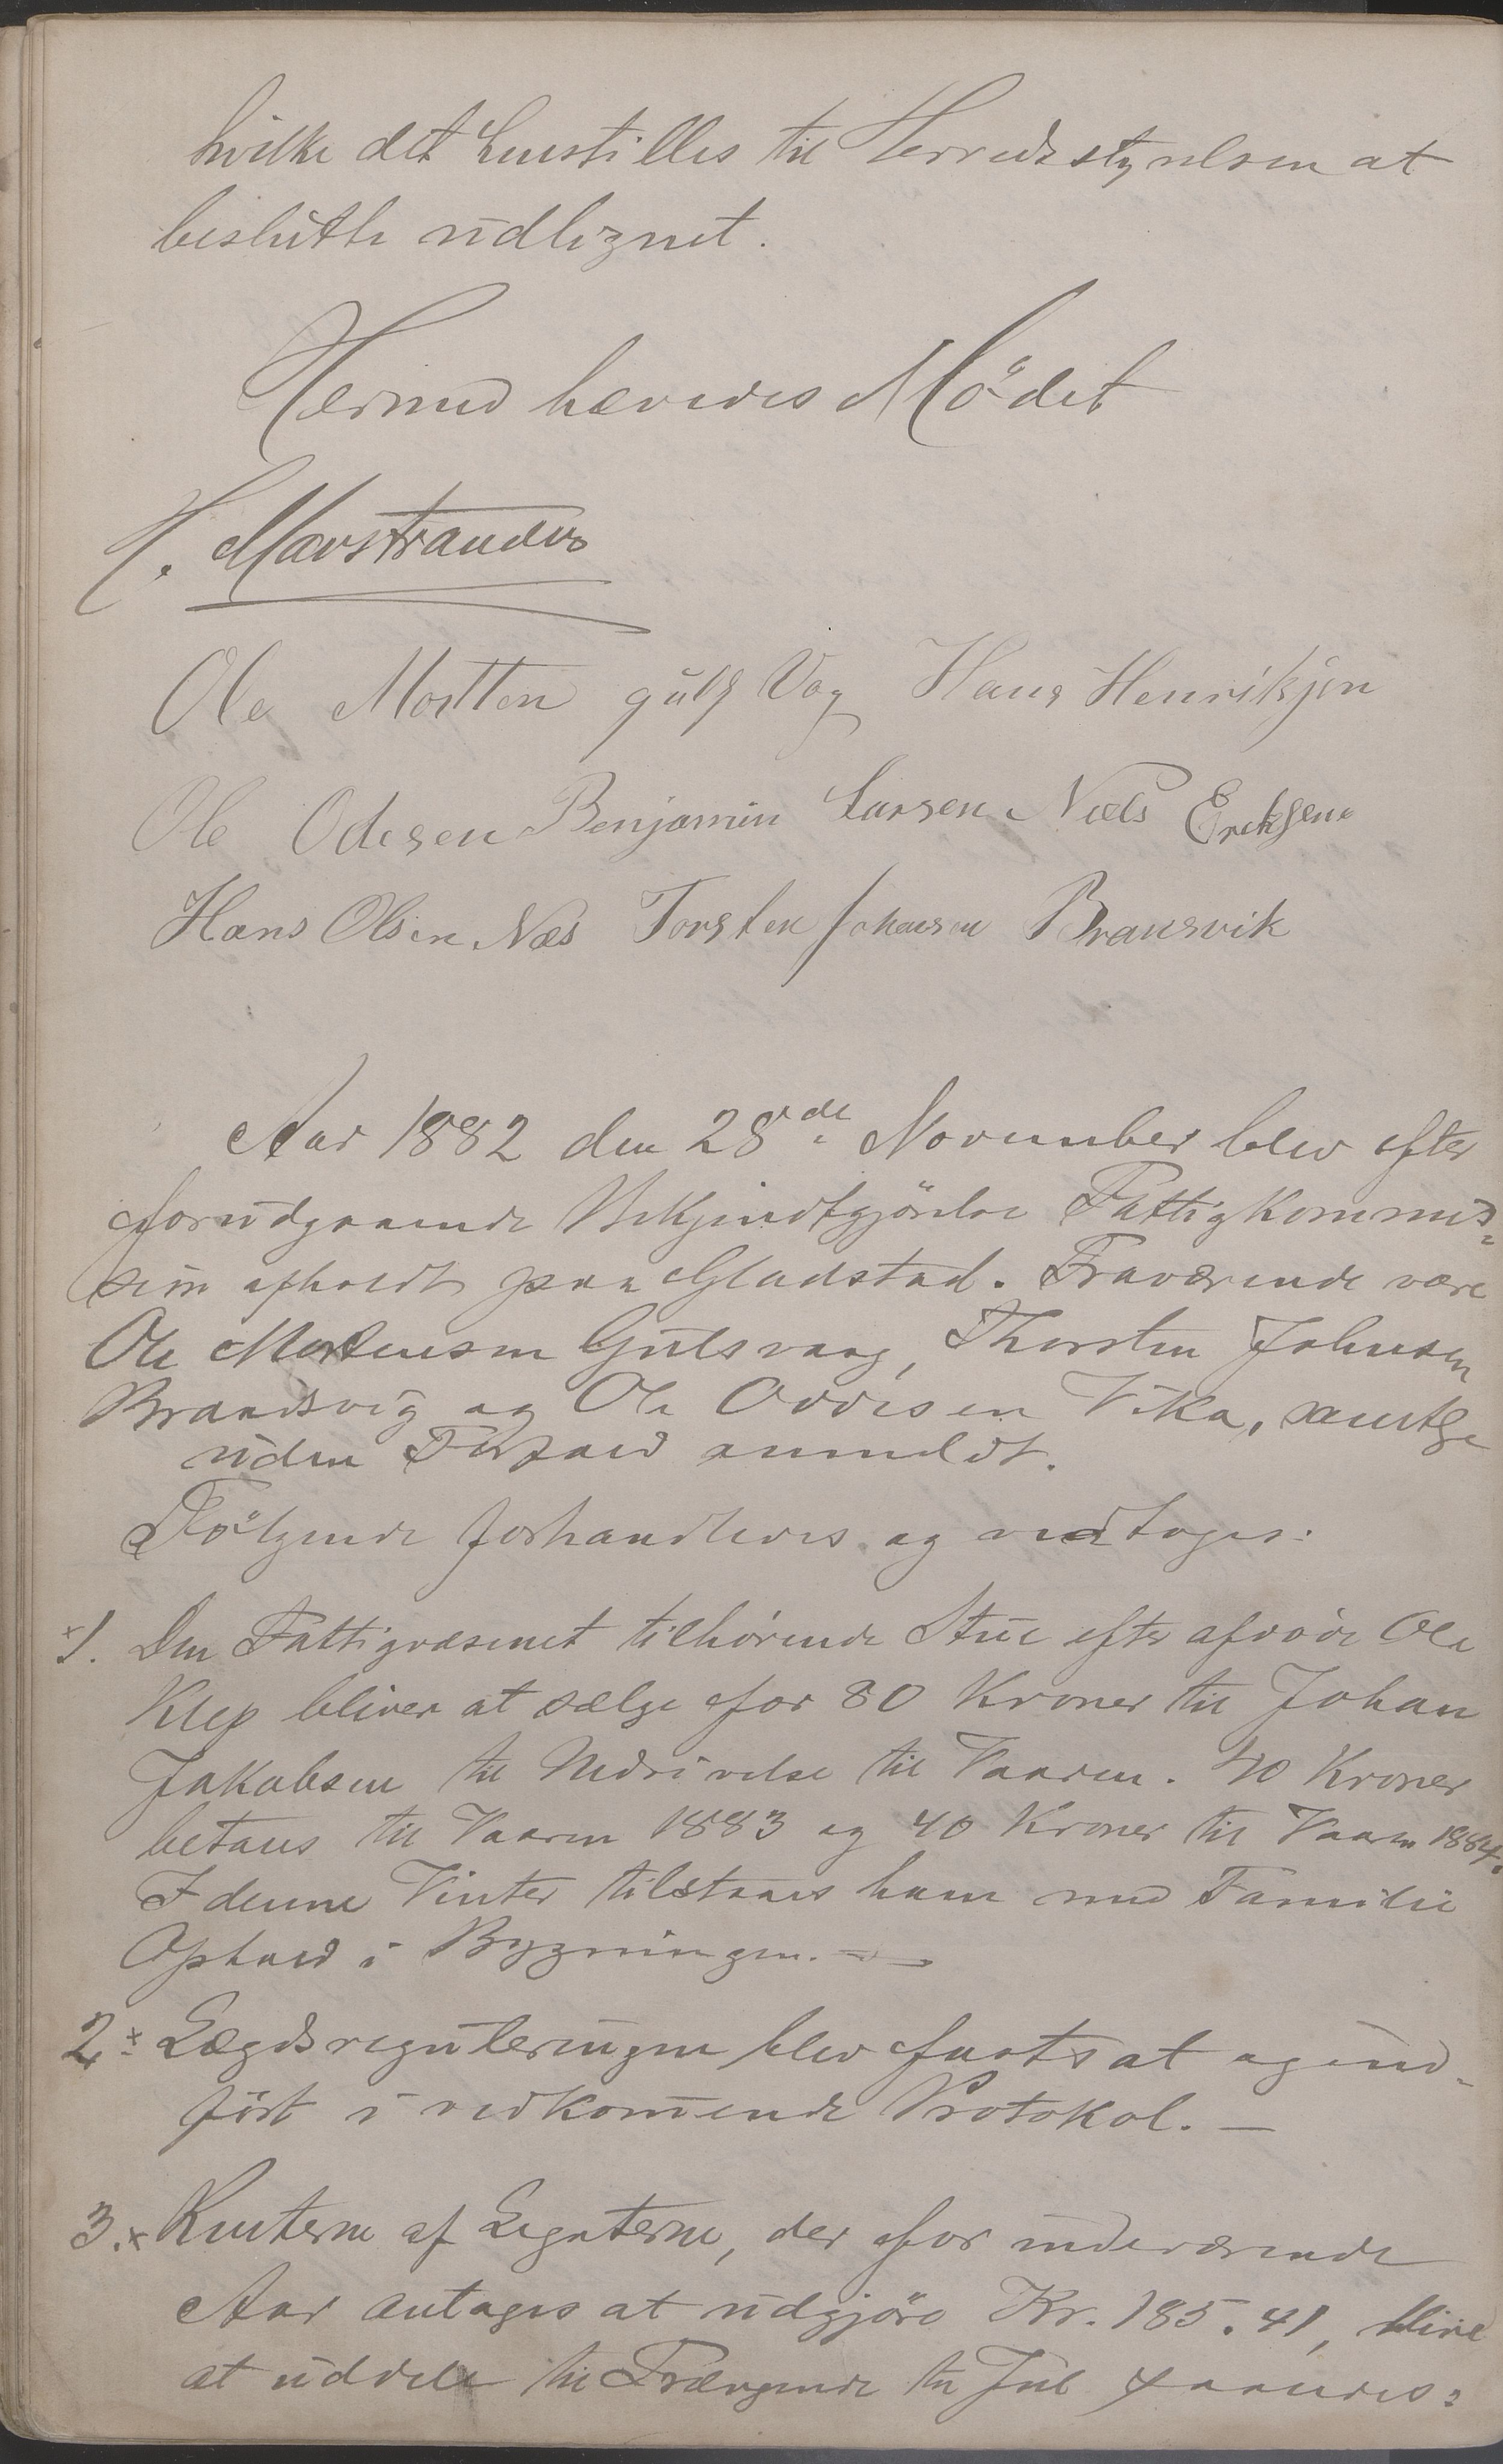 hvilke det henstilles til Herredsstyrelsen at
beslutte udlignet.
Hermed hævedes Mödet
H. Marstrander
Ole Mortten gulsVog Hans Henriksen
Ole Odesen Benjamin Larsen Niels Ericksen
Hans Olsen Næs Torsten Johansen Bransvik
Aar 1882 den 28de November blev efter
forudgaaende Bekjendtgjörelse Fattigkommis=
sion afholdt paa Gladstad. Fraværende vare
Ole Mortensen Gulsvaag, Thorsten Johnsen
Brandsvig og Ole Oddesen Vika, samtlige
uden Forfald anmeldt.
Fölgende forhandledes og vedtoges:
1. Den Fattigvæsenet tilhörende Stue efter afdöde Ole
Klep bliver at sælge for 80 Kroner til Johan
Jakobsen til Nedrivelse til Vaaren. 40 Kroner
betales til Vaaren 1883 og 40 Kroner til Vaaren 1884.
I denne Vinter tilstaaes ham med Familie
Ophold i Bygningen.
2. Lægdsreguleringen blev fastsat og ind-
fört i vedkommende Protokol. —
3. Renterne af Legaterne, der for indeværende
Aar antages at udgjöre Kr. 185.41, blive
at uddele til Trængende til Jul saaledes: